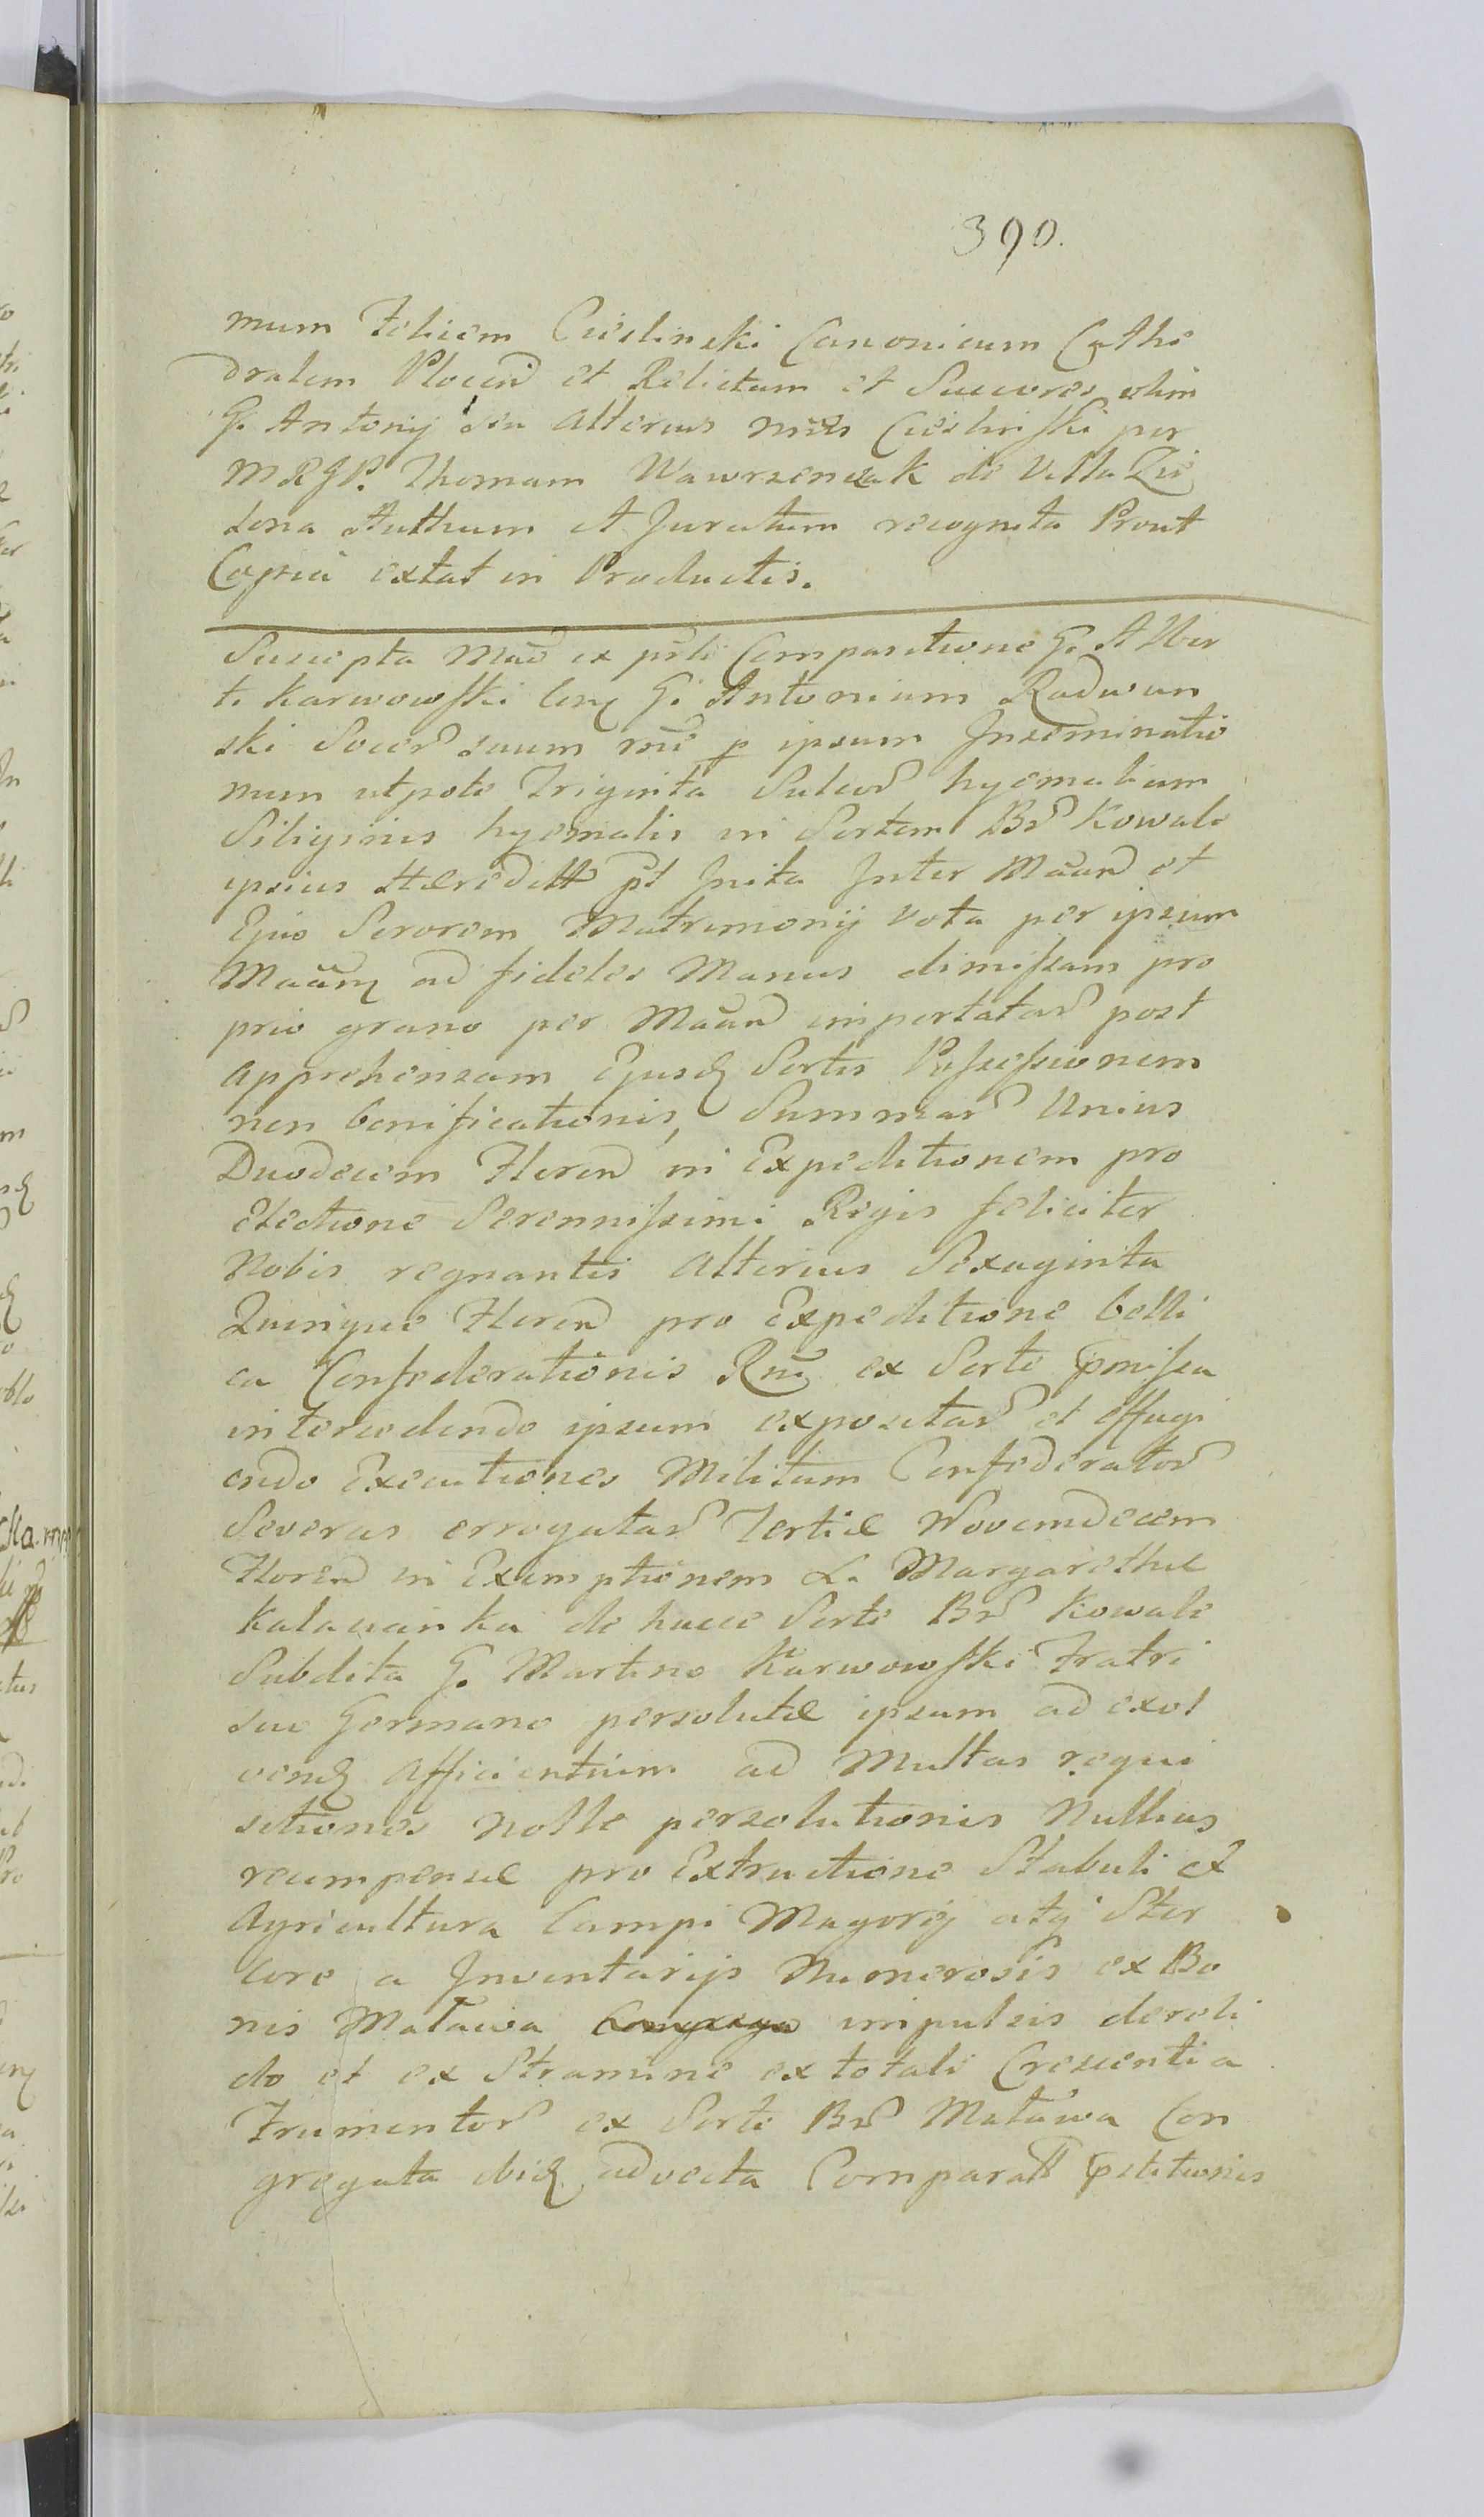 390.
mum Felicem Cieslinski Canonicum Cathe
dralem Plocen et Relictam et Succores olim
G. Antonij seu Alterius nnis Ciesliński per
MRJP. Thomam Wawrzenczak de Villa Zie
lona Authum et Juratum recognita Prout
Copia extat in Productis.
Suscepta Mad ex pnti Comparitione G. Alber
ti Karwowski Con G. Antonium Radwan
ski Socer suum rne p ipsum Inseminatio
num utpote Triginta Sulcor hyemalium
Siliginis hyemalis in Sortem Br Kowale
ipsius Hæreditt pt Inita Inter Maand et
Ejus Sororem Matrimonij vota per ipsum
Maam ad fideles Manus dimissam pro
prio grano per Maand importatar post
apprehensam Ejusd Sortis Possessionem
non bonificationis, Summar Unius
Duodecem Floren in Expeditionem pro
electione Serennissimi Regis feliciter
Nobis regnantis alterius Sexaginta
Quinque Floren pro Expeditione belli
ca Confederationis Rni ex Sorte pmissa
intercedendo ipsum expositar et effugi
endo Executiones Militum Confederator
Severas errogatar Tertiæ Novemdecem
Floren in Exemptionem L. Margarethæ
Kalawanka de hacce Sorte Br Kowale
Subdita G. Martino Karwowski Fratri
suo Germano persolutæ ipsum ad exol
vend afficientium ad Multas requi
sitiones Nolle persolutionis Nullius
recumpensæ pro Extructione Stabuli et
Agricultura Campi Magorij atq Ster
core a Inventarijs Numerosis ex Bo
nis Matawa impulsis dereli
cto et ex Stramine ex totali Crescentia
Frumentor ex Sorte Br Matawa Con
gregata ibid advecta Comparatt petitionis